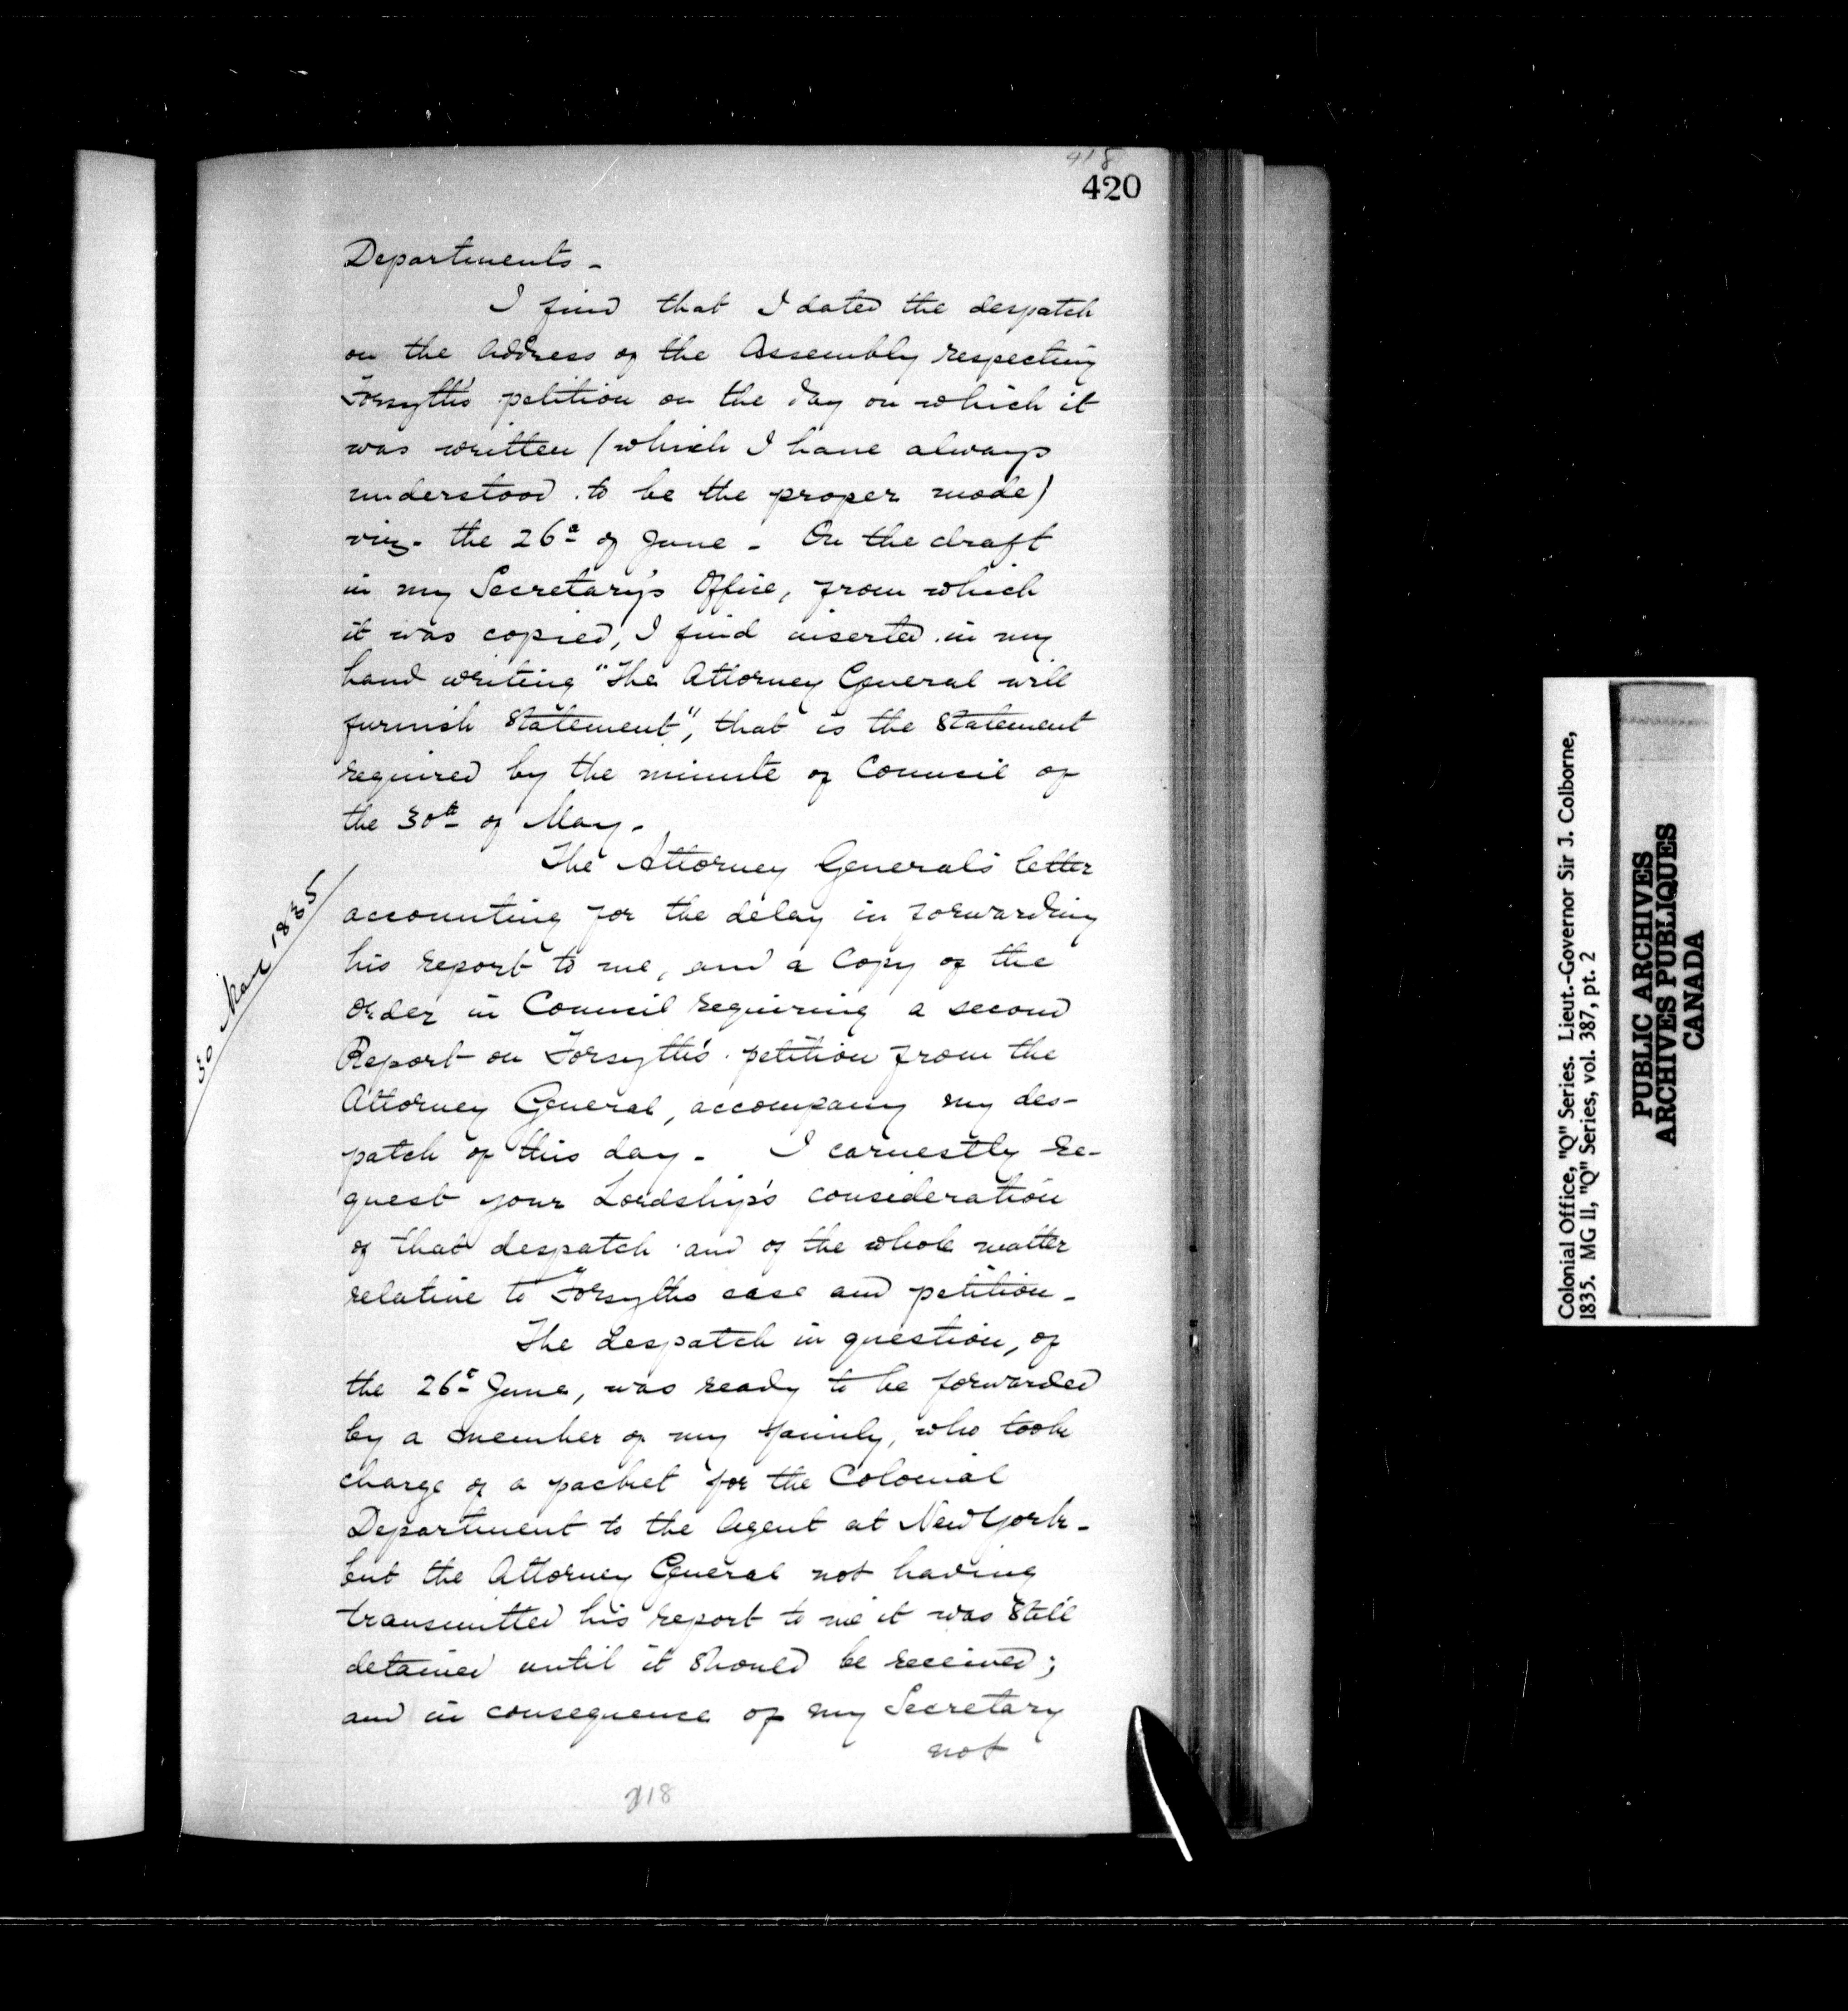 418
420
Departments -
I find that I dated the despatch
on the Address of the Assembly respecting
Forsyth's petition on the day on which it
was written (which I have always
understood to be the proper mode)
viz. the 26th of June - On the draft
in my Secretary's Office, from which
it was copied, I find inserted in my
hand writing "The Attorney General will
furnish Statement", that is the Statement
required by the minute of Council of
the 30th of May.
The Attorney General's letter
accounting for the delay in forwarding
his report to me, and a Copy of the
Order in Council requiring a second
Report on Forsyth's petition from the
Attorney General, accompany my des-
patch of this day - I earnestly re-
quest your Lordship's consideration
of that despatch and of the whole matter
relative to Forsyths case and petition -
The despatch in question, of
the 26th June, was ready to be forwarded
by a member of my family, who took
charge of a packet for the Colonial
Department to the Agent at New York -
but the Attorney General not having
transmitted his report to me it was still
detained until it should be received;
and in consequence of my Secretary
not
30 Mar 1835
Colonial Office, "Q" Series. Lieut.-Governor Sir J. Colborne,
1835. MG 11, "Q" Series, vol. 387, pt. 2
PUBLIC ARCHIVES
ARCHIVES PUBLIQUES
CANADA